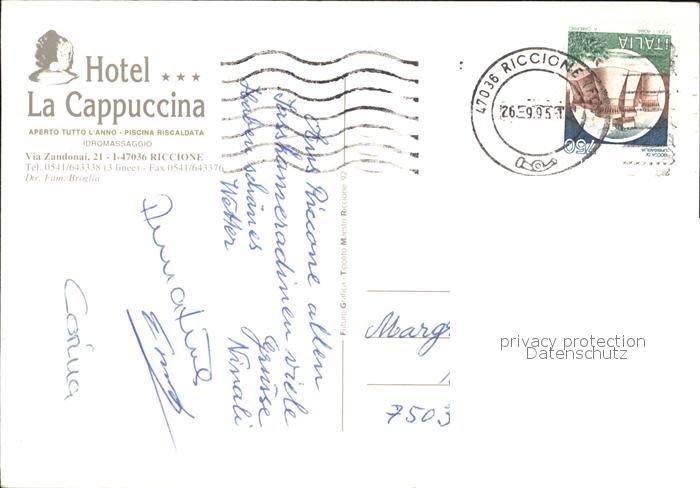 Hotel ★★★
La Cappuccina
APERTO TUTTO L'ANNO - PISCINA RISCALDATA
IDROMASSAGGIO
Via Zandonai, 21 - I-47036 RICCIONE
Tel. 0541/643338 (3 linee) - Fax 0541/643376
Dir. Fam. Broglia
Aus Riccione allen
viele
Grüsse
Haben schönes
Wetter
Ernst
Corina
Futuro Grafica - Tipolito Maestri Riccione 92
47036 RICCIONE
26.-9.95
ITALIA
750
ROCCA DI
Marg
7503
privacy protection
Datenschutz